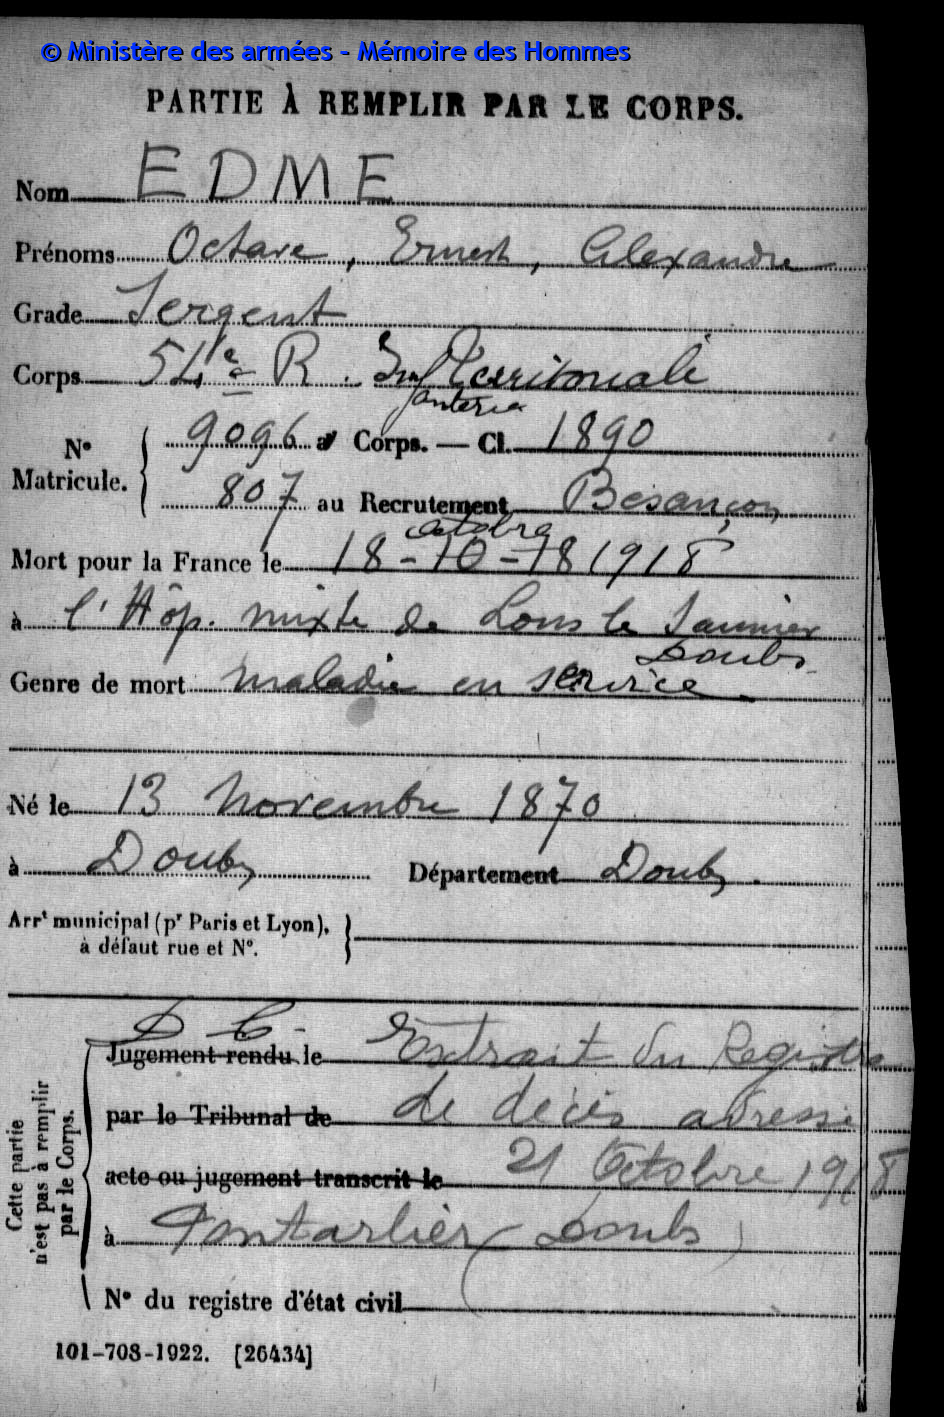 © Ministère des armées - Mémoire des Hommes
PARTIE À REMPLIR PAR LE CORPS.
Nom EDME
Prénoms Octave, Ernest, Alexandre
Grade Sergent
Corps 54e R. Inf Territoriale
anterie
No Matricule. 9096 au Corps. — Cl. 1890
807 au Recrutement Besançon
octobre
Mort pour la France le 18-10-18 1918
à l'Hôp. mixte de Lons le Saunier
Doubs
Genre de mort maladie en service.
Né le 13 Novembre 1870
à Doubs Département Doubs.
Arrt municipal (pr Paris et Lyon),
à défaut rue et No.
Cette partie
n'est pas à remplir
par le Corps.
D C-
Jugement rendu le Extrait du Registre
par le Tribunal de de décès adressé
acte ou jugement transcrit le 21 Octobre 1918
à Pontarlier (Doubs)
No du registre d'état civil
101-708-1922. [26434]